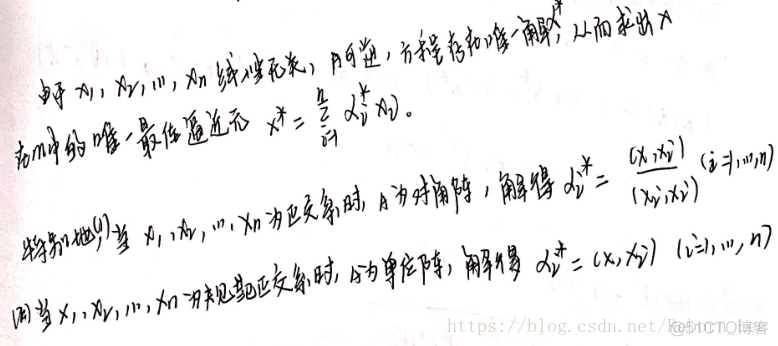 由于 x₁, x₂, ..., xₙ 线性无关, A可逆, 方程存在唯一解α*, 从而求出 x
在M中的唯一最佳逼近元 x* = Σᵢ₌₁ⁿ αᵢ* xᵢ。
特别地,(1)当 x₁, x₂, ..., xₙ 为正交系时, A为对角阵, 解得 αᵢ* = (x, xᵢ)/(xᵢ, xᵢ) (i=1, ..., n)
(2)当 x₁, x₂, ..., xₙ 为规范正交系时, A为单位阵, 解得 αᵢ* = (x, xᵢ) (i=1, ..., n)
https://blog.csdn.net/
@51CTO博客